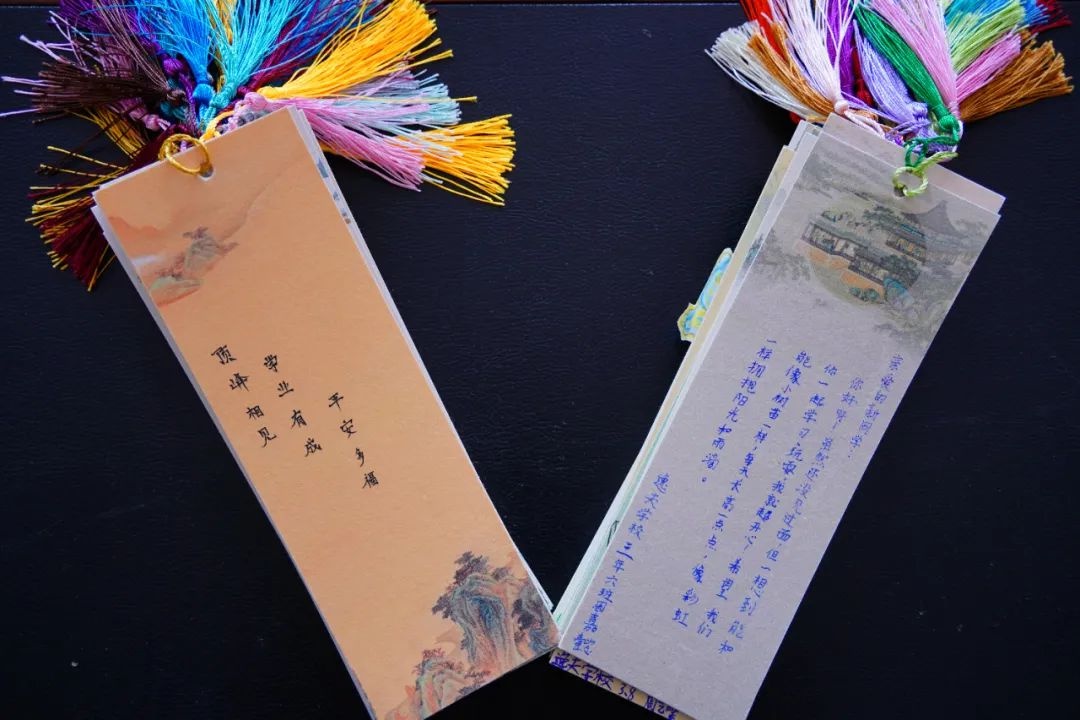 平安多福
学业有成
顶峰相见
亲爱的新同学：
你好呀！虽然还没见过面，但一想到能和
你一起学习、玩耍，我就超开心！希望我们
能像小树苗一样，每天长高一点点，像彩虹
一样拥抱阳光和雨滴。
逸夫学校三年六班周嘉懿
逸夫学校 3.8